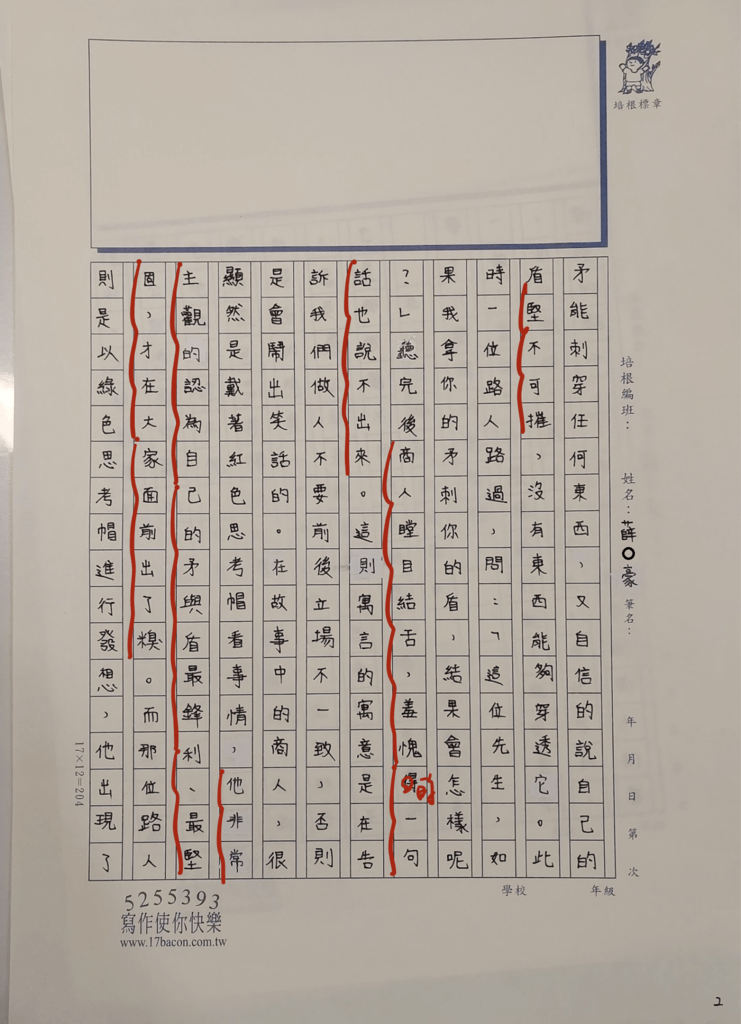 培根標章
培根編班：
姓名：薛○豪
筆名：
年 月 日 第 次
矛能刺穿任何東西，又自信的說自己的
盾堅不可摧，沒有東西能夠穿透它。此
時一位路人路過，問：「這位先生，如
果我拿你的矛刺你的盾，結果會怎樣呢
？」聽完後商人瞠目結舌，羞愧的一句
話也說不出來。這則寓言的寓意是在告
訴我們做人不要前後立場不一致，否則
是會鬧出笑話的。在故事中的商人，很
顯然是戴著紅色思考帽看事情，他非常
主觀的認為自己的矛與盾最鋒利、最堅
固，才在大家面前出了糗。而那位路人
則是以綠色思考帽進行發想，他出現了
17×12=204
學校 年級
5255393
寫作使你快樂
www.17bacon.com.tw
2